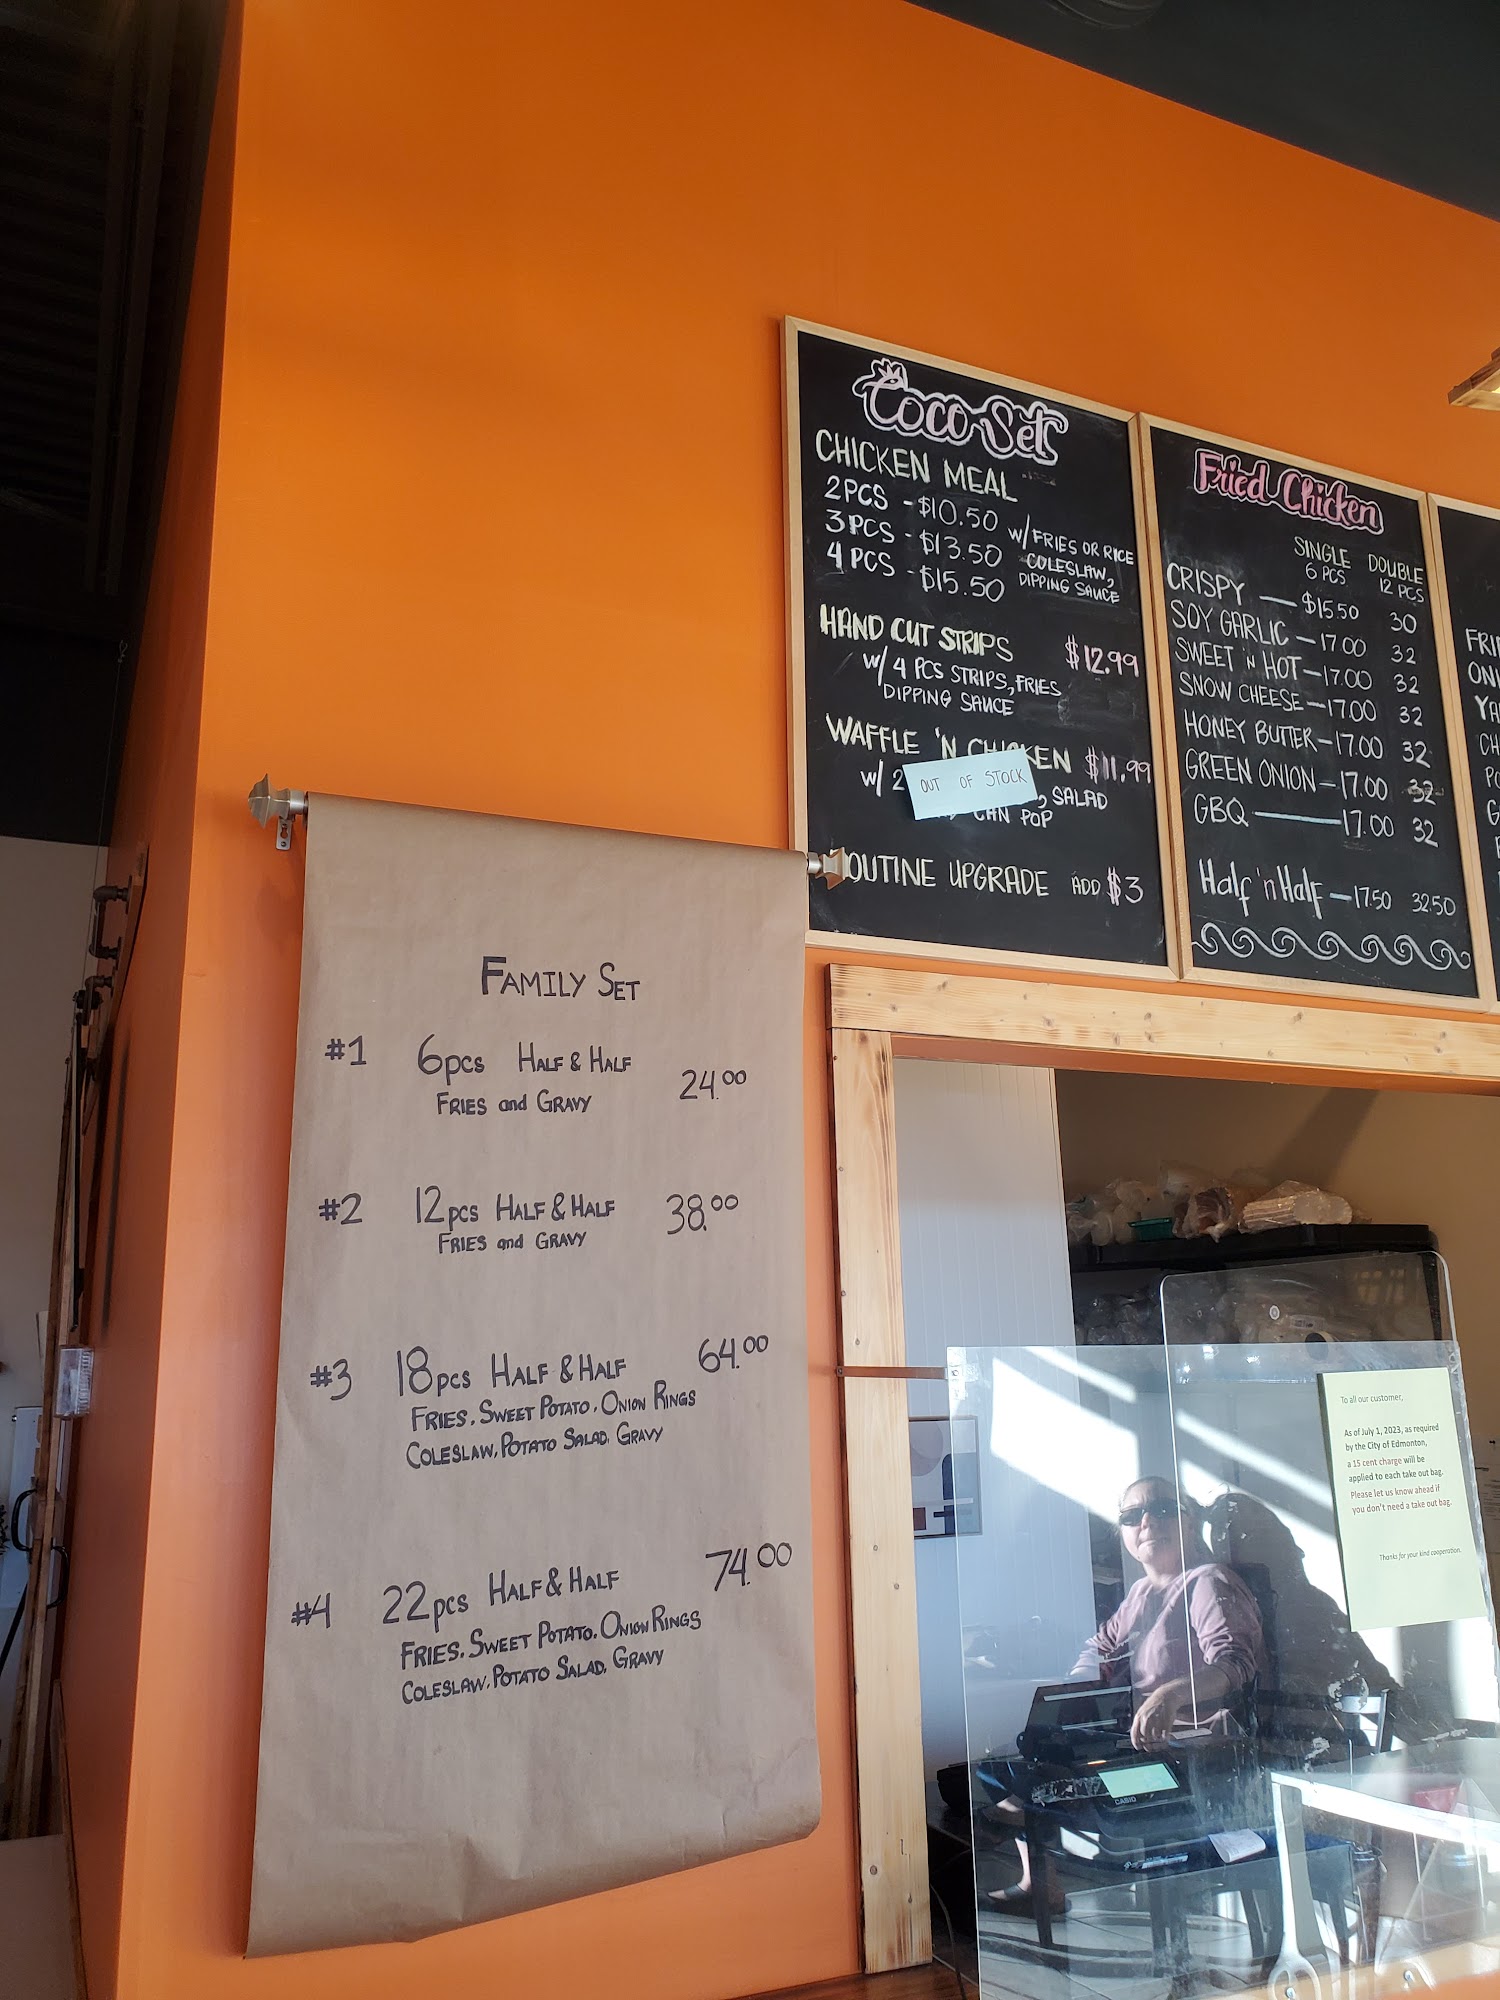 Coco Sets
CHICKEN MEAL
2PCS - $10.50
3PCS - $13.50
4PCS - $15.50
W/ FRIES OR RICE
COLESLAW,
DIPPING SAUCE
HAND CUT STRIPS $12.99
W/ 4 PCS STRIPS, FRIES
DIPPING SAUCE
WAFFLE 'N CHICKEN $11.99
W/ 2 , SALAD
CAN POP
OUT OF STOCK
OUTINE UPGRADE ADD $3
Fried Chicken
SINGLE DOUBLE
6 PCS 12 PCS
CRISPY — $15.50 30
SOY GARLIC — 17.00 32
SWEET 'N HOT — 17.00 32
SNOW CHEESE — 17.00 32
HONEY BUTTER — 17.00 32
GREEN ONION — 17.00 32
GBQ — 17.00 32
Half 'n Half — 17.50 32.50
FRI
ONI
YA
CH
PO
G
FAMILY SET
#1 6pcs HALF & HALF 24.00
FRIES and GRAVY
#2 12pcs HALF & HALF 38.00
FRIES and GRAVY
#3 18pcs HALF & HALF 64.00
FRIES, SWEET POTATO, ONION RINGS
COLESLAW, POTATO SALAD, GRAVY
#4 22pcs HALF & HALF 74.00
FRIES, SWEET POTATO, ONION RINGS
COLESLAW, POTATO SALAD, GRAVY
To all our customer,
As of July 1, 2023, as required
by the City of Edmonton,
a 15 cent charge will be
applied to each take out bag.
Please let us know ahead if
you don't need a take out bag.
Thanks for your kind cooperation.
CASIO